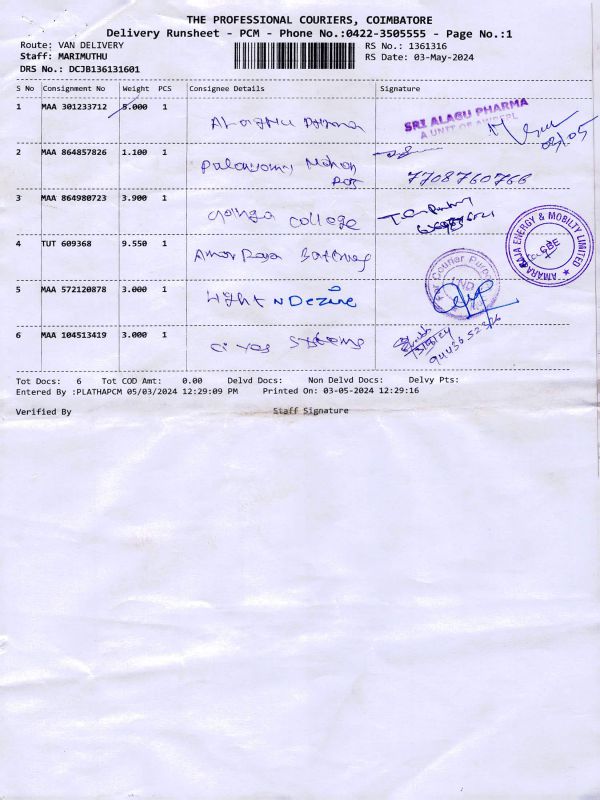 THE PROFESSIONAL COURIERS, COIMBATORE
Delivery Runsheet - PCM - Phone No.:0422-3505555 - Page No.:1
Route: VAN DELIVERY RS No.: 1361316
Staff: MARIMUTHU RS Date: 03-May-2024
DRS No.: DCJB136131601
S No Consignment No Weight PCS Consignee Details Signature
1 MAA 301233712 5.000 1 SRI ALAGU PHARMA
A UNIT OF
03/05
2 MAA 864857826 1.100 1 Mohan
7708760766
3 MAA 864980723 3.900 1 Ganga College
4 TUT 609368 9.550 1 Amar Raja Batteries
AMARA RAJA ENERGY & MOBILTY LIMITED
CBE
5 MAA 572120878 3.000 1 Light N Dezine
For Courier Purpose
6 MAA 104513419 3.000 1 Systems
Tot Docs: 6 Tot COD Amt: 0.00 Delvd Docs: Non Delvd Docs: Delvy Pts:
Entered By :PLATHAPCM 05/03/2024 12:29:09 PM Printed On: 03-05-2024 12:29:16
Verified By Staff Signature